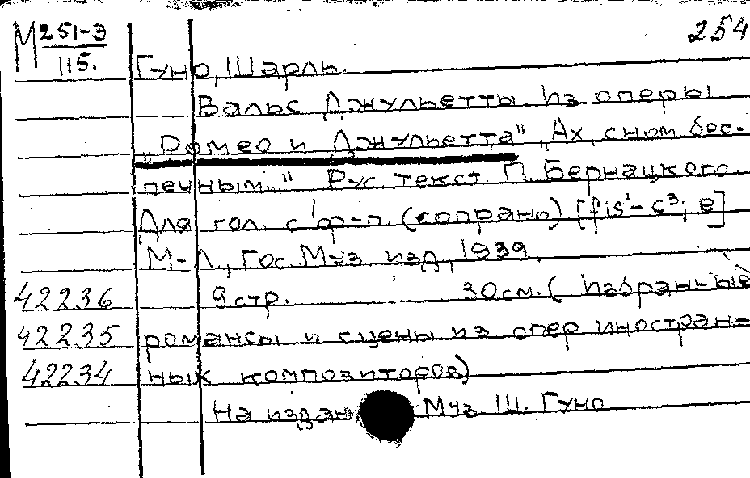 М 251-3
115.
254
Гуно, Шарль.
Вальс Джульетты из оперы
„Ромео и Джульетта" „Ах, сном бес-
печным..." Рус. текст П. Бернацкого.
Для гол. с ф-п. (сопрано) [fis¹-c³; e]
М-Л., Гос. Муз. изд., 1939.
42236 9 стр. 30 см. ( Избранные
42235 романсы и сцены из опер иностран-
42234 ных композиторов)
На издан Муз. Ш. Гуно